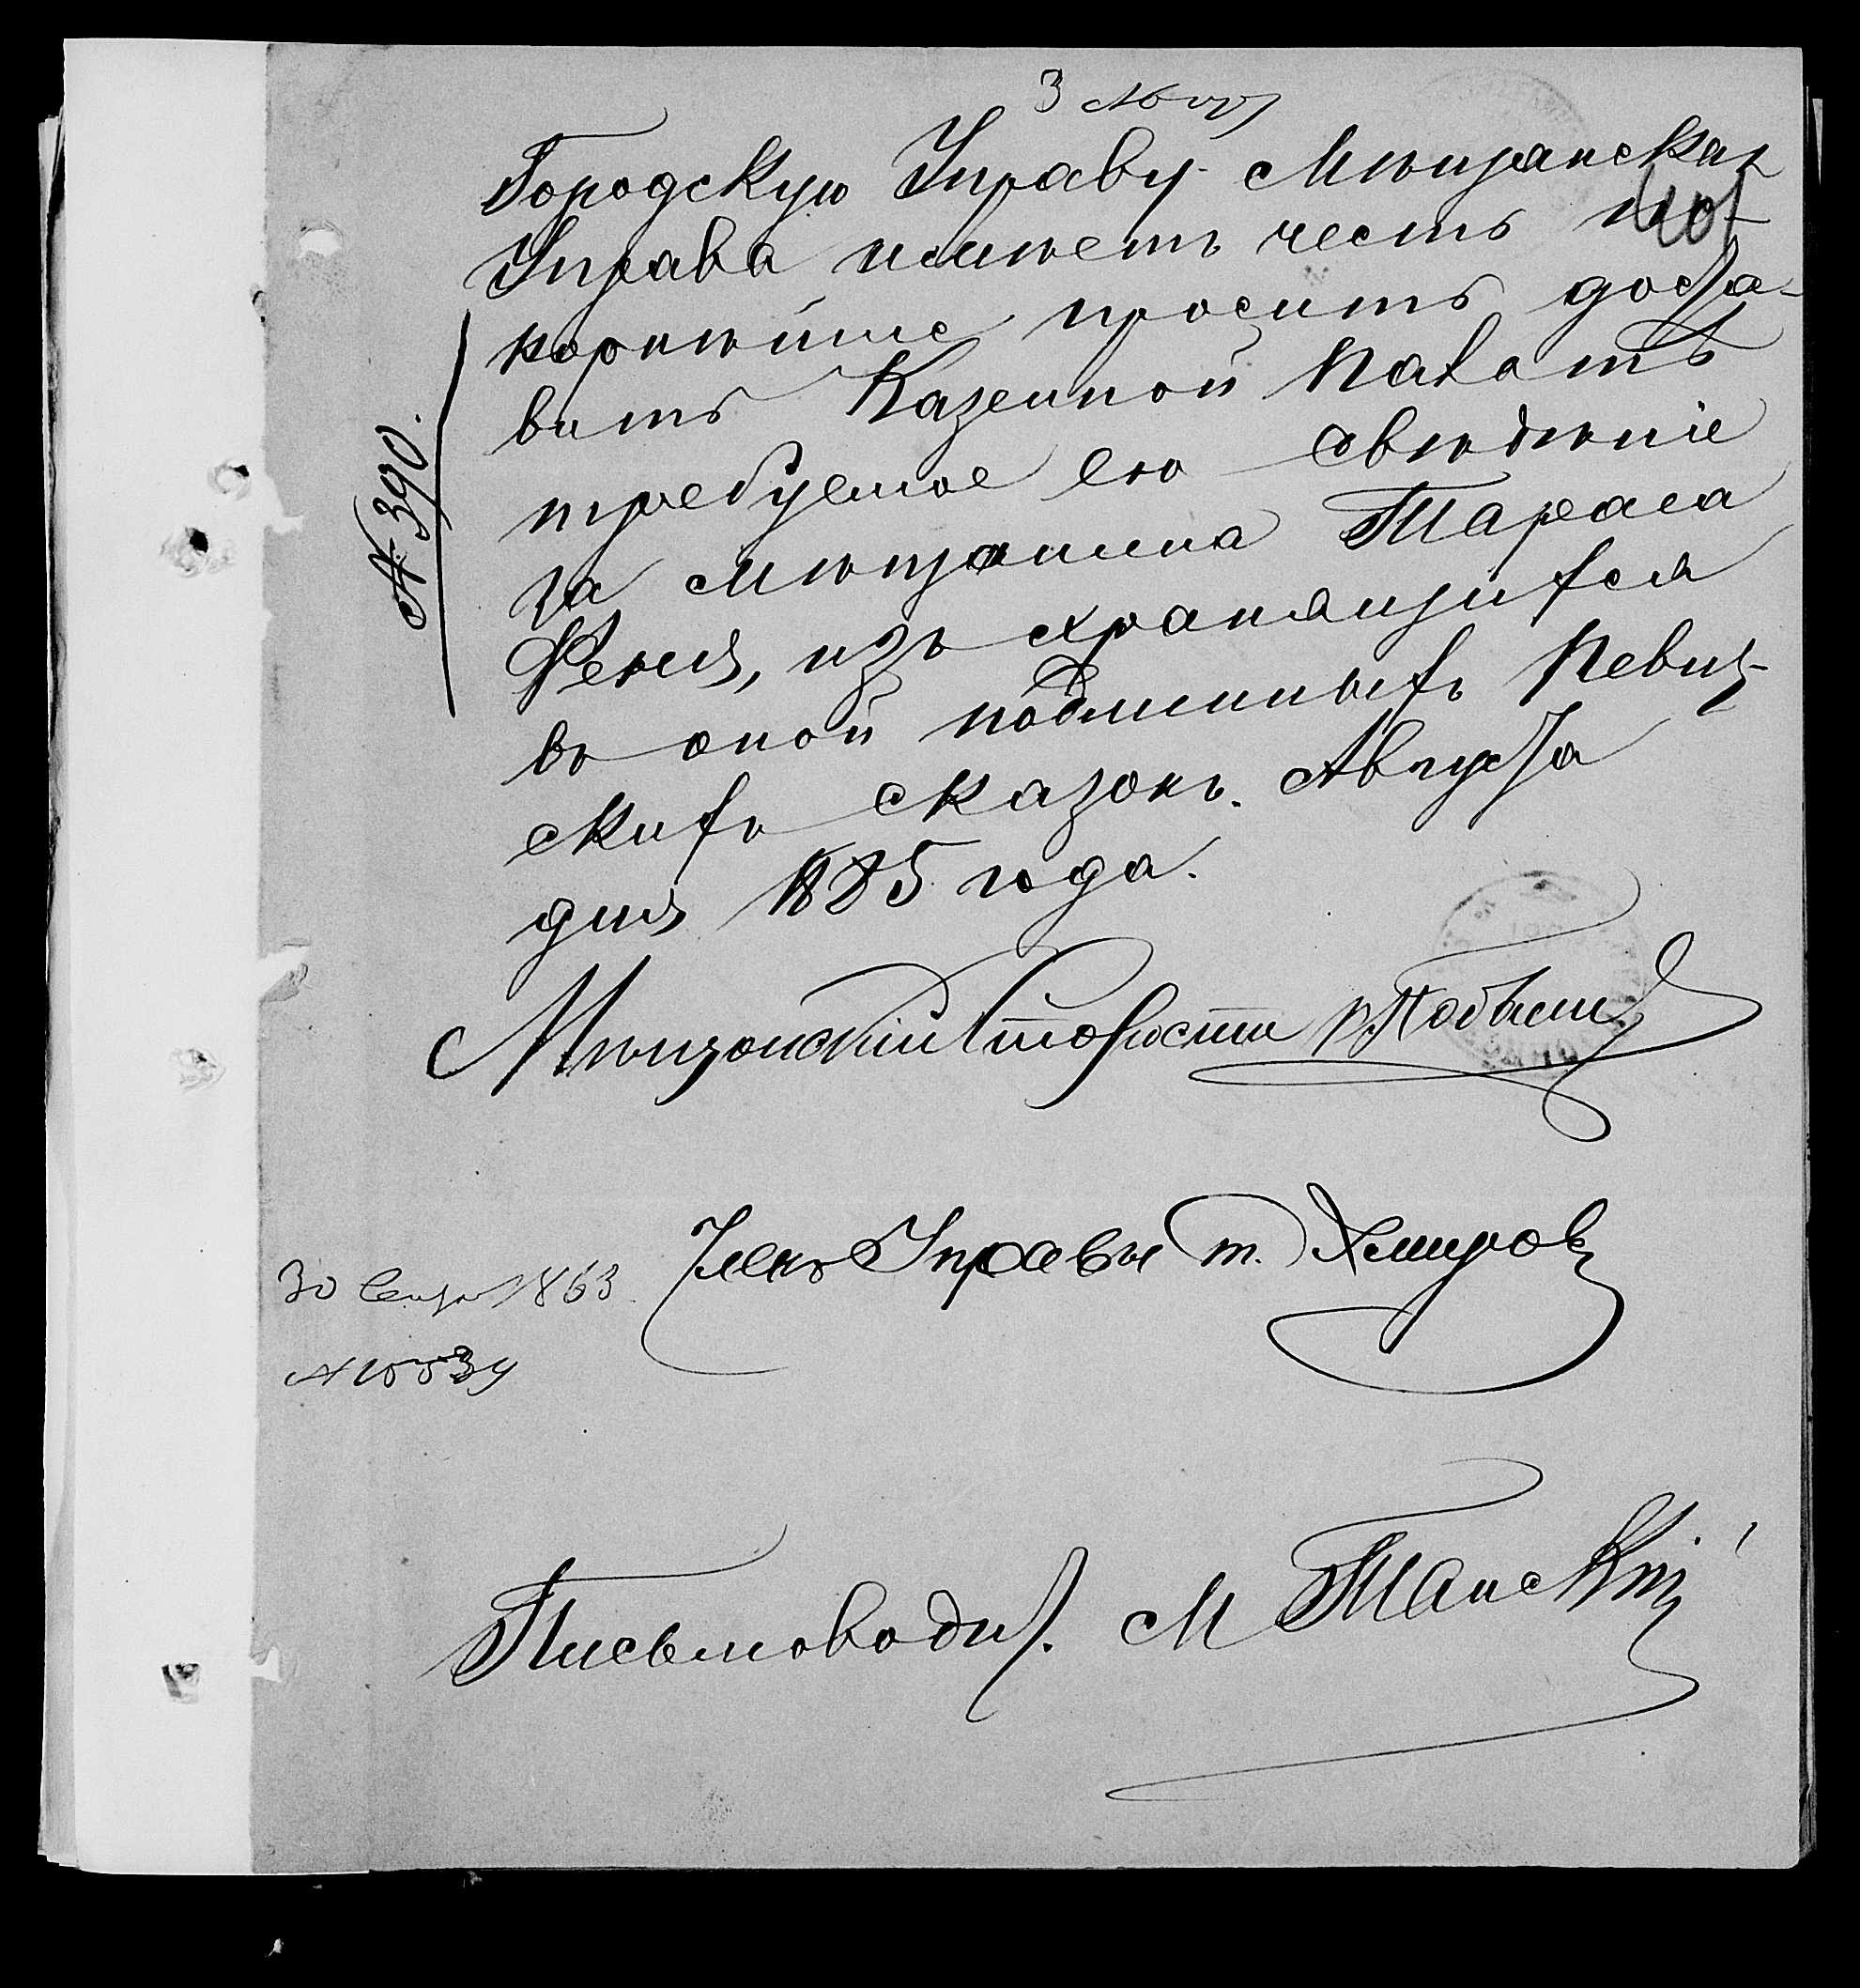 3 Авгу
Городскую Управу Мѣщанская
401
Управа имѣетъ честь по-
корнѣйше просить доста-
вить Казенной Палатѣ
требуемое ею свѣдѣніе
за мѣщанина Тараса
изъ хранящихся
въ оной подлинныхъ Ревиз-
скихъ сказокъ. Августа
дня 1885 года.
№ 390.
Мѣщанскій Староста
Членъ Управы
30 1863
№
Письмоводит. М Танскій